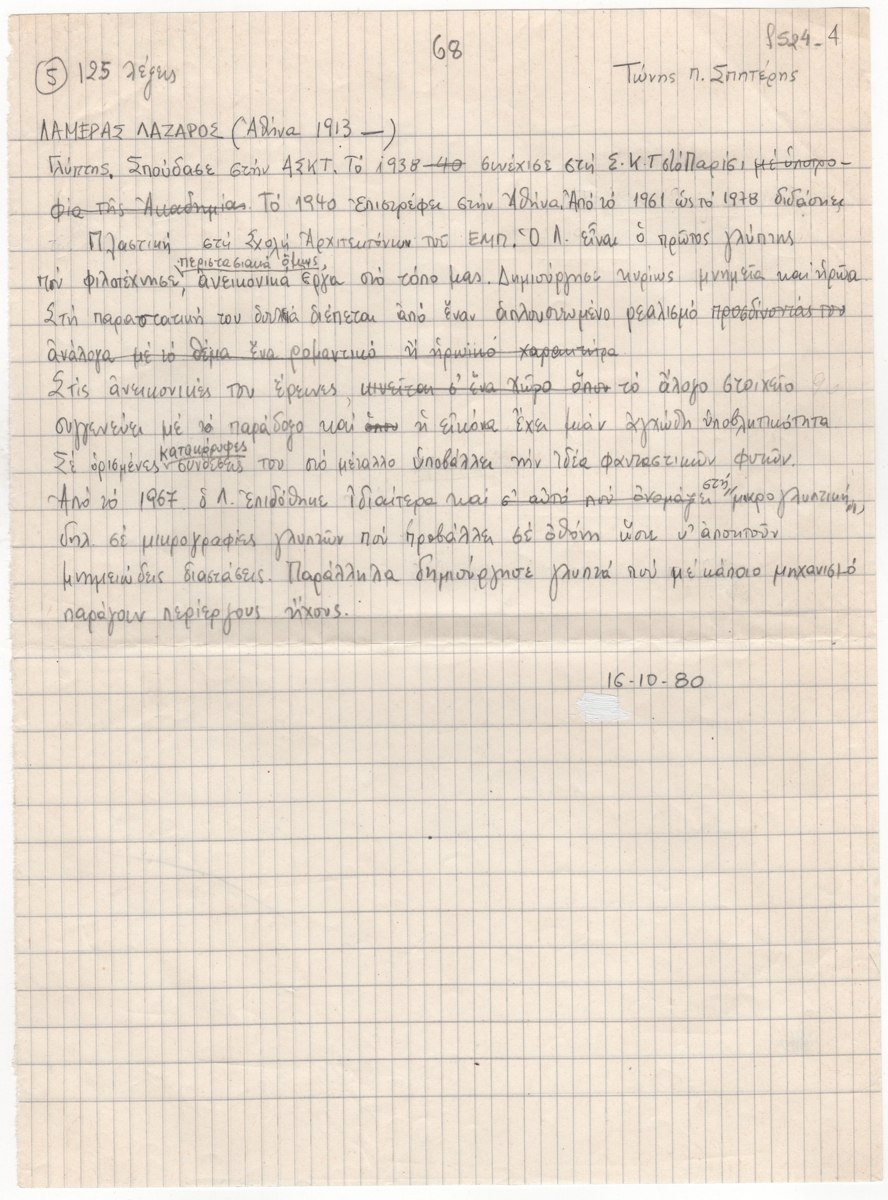 68
S524-4
⑤ 125 λέξεις
Τώνης Π. Σπητέρης
ΛΑΜΕΡΑΣ ΛΑΖΑΡΟΣ (Ἀθήνα 1913 —)
Γλύπτης. Σπούδασε στήν ΑΣΚΤ. Τό 1938-40 συνέχισε στή Σ.Κ.Τ στό Παρίσι μέ ὑποτρο-
φία τῆς Ἀκαδημίας. Τό 1940 ἐπιστρέφει στήν Ἀθήνα. Ἀπό τό 1961 ὥς τό 1978 διδάσκει
Πλαστική στή Σχολή Ἀρχιτεκτόνων τοῦ ΕΜΠ. Ὁ Λ. εἶναι ὁ πρῶτος γλύπτης
περιστασιακά ὅμως,
πού φιλοτέχνησε, ἀνεικονικά ἔργα στό τόπο μας. Δημιούργησε κυρίως μνημεῖα καί ἡρῶα.
Στή παραστατική του δουλιά διέπεται ἀπό ἕναν ἁπλουστωμένο ρεαλισμό προσδίνοντάς του
ἀνάλογα μέ τό θέμα ἕνα ρομαντικό ἤ ἡρωικό χαρακτήρα
Στίς ἀνεικονικές του ἔρευνες, κινεῖται σ' ἕνα χῶρο ὅπου τό ἄλογο στοιχεῖο
συγγενεύει μέ τό παράδοξο καί ὅπου ἡ εἰκόνα ἔχει μιάν ἀγχώδη ὑποβλητικότητα
κατακόρυφες
Σέ ὁρισμένες συνθέσεις του στό μέταλλο ὑποβάλλει τήν ἰδέα φανταστικῶν φυτῶν.
στή
Ἀπό τό 1967 ὁ Λ. ἐπιδόθηκε ἰδιαίτερα καί σ' αὐτό πού ὀνομάζει "μικρογλυπτική",
δηλ. σέ μικρογραφίες γλυπτῶν πού προβάλλει σέ ὀθόνη ὥστε ν' ἀποκτοῦν
μνημειώδεις διαστάσεις. Παράλληλα δημιούργησε γλυπτά πού μέ κάποιο μηχανισμό
παράγουν περίεργους ἤχους.
16-10-80